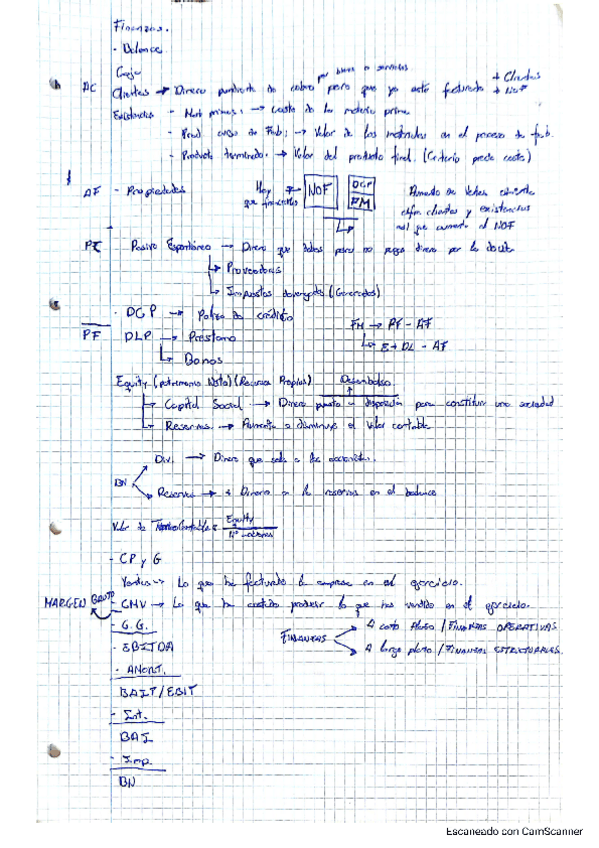 Finanzas.
- Balance
Caja
por bienes o servicios
AC Clientes → Dinero pendiente de cobro pero que ya está facturado + Clientes + NOF
Existencias - Mat primas: → Coste de la materia prima
- Prod. curso de Fab: → Valor de los materiales en el proceso de fab.
- Producto terminado. → Valor del producto final. (Criterio precio coste)
AF - Propiedades
Hay que financiarlos
NOF
DCP
FM
Aumento de ventas
clientes y existencias
que aumente el NOF
PC - Pasivo Espontáneo → Dinero que debes pero no pagas dinero por la deuda
↳ Proveedores
↳ Impuestos devengados (Generados)
- DCP → Poliza de crédito
FM → PF - AF
↳ E + DL - AF
PF DLP → Préstamo
↳ Bonos
Equity (patrimonio Neto) (Recursos Propios)
Desembolso
↳ Capital Social → Dinero puesto a disposición para constituir una sociedad
↳ Reservas → Aumenta o disminuye el valor contable
BN
Div. → Dinero que sale a los accionistas.
Reservas → + Dinero en las reservas en el balance
Valor Contable = Equity / Nº acciones
- CP y G
Ventas → Lo que ha facturado la empresa en el ejercicio.
MARGEN BRUTO
- CMV → Lo que ha costado producir lo que has vendido en el ejercicio.
- G.G.
FINANZAS
A corto plazo / FINANZAS OPERATIVAS
A largo plazo / FINANZAS ESTRUCTURALES.
- EBITDA
- AMORT.
BAIT/EBIT
- Int.
BAI
- Imp.
BN
Escaneado con CamScanner